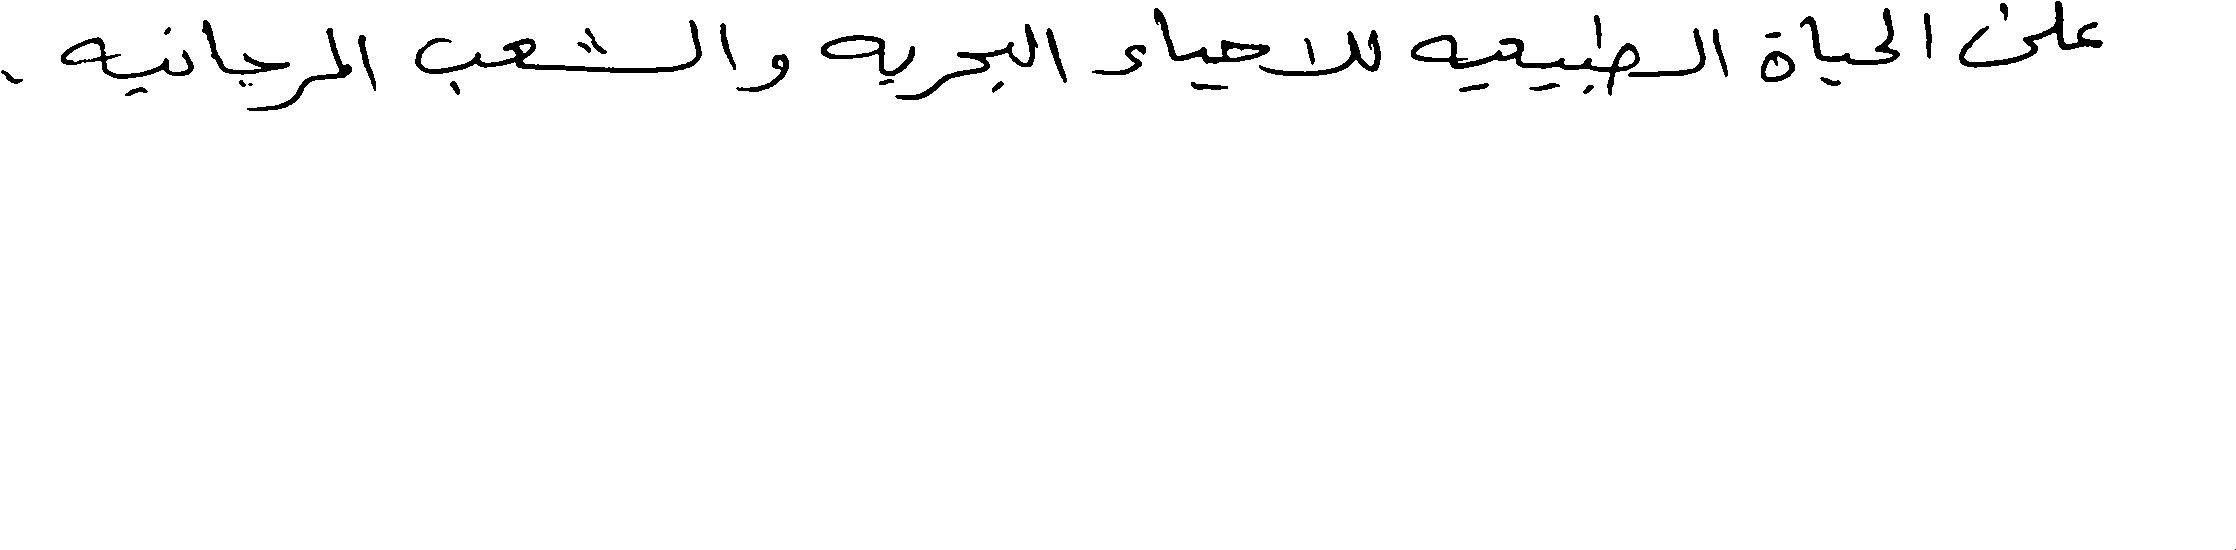 على الحياة الطبيعيه للاحياء البحريه والشعب المرجانيه .